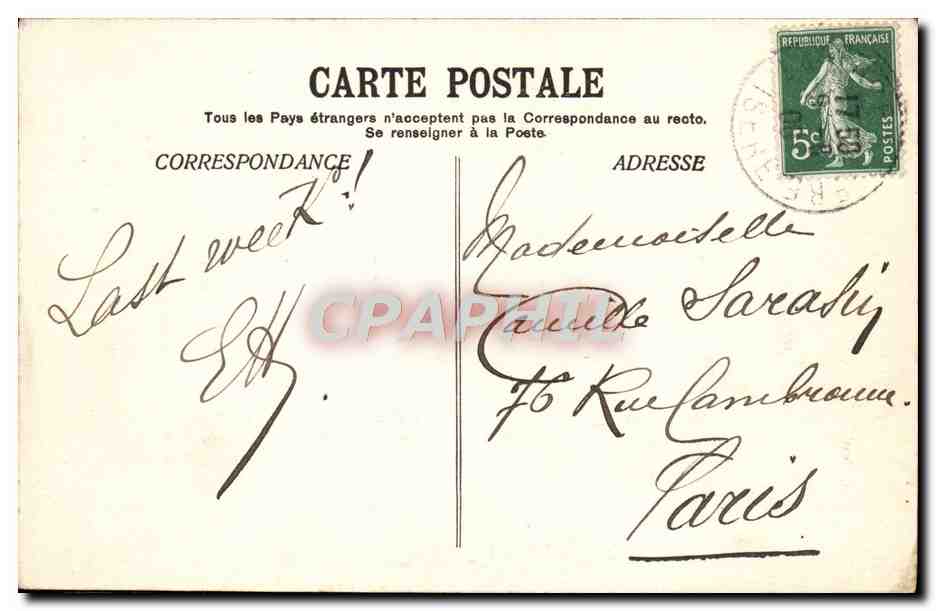 CARTE POSTALE
Tous les Pays étrangers n'acceptent pas la Correspondance au recto.
Se renseigner à la Poste.
CORRESPONDANCE
Last week!
EH.
ADRESSE
Mademoiselle
Camille Sarasin
76 Rue Cambronne.
Paris
REPUBLIQUE FRANÇAISE
5c
POSTES
ISERE
CPAPHIL